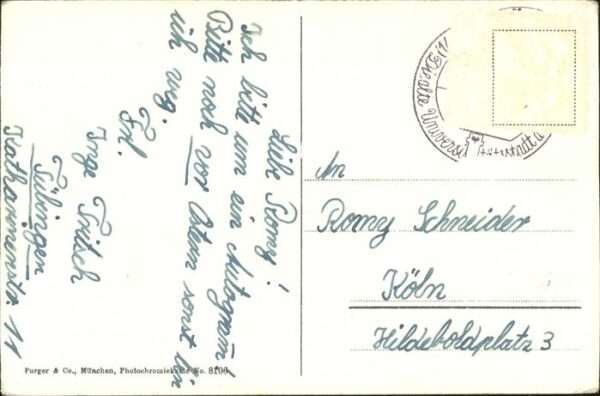 Liebe Romy!
Ich bitte um ein Autogramm!
Bitte noch vor Ostern sonst bin
ich weg.
Frl.
Inge Fritsch
Tübingen
Katharinenstr 11
Die alte Universi
An
Romy Schneider
Köln
Hildeboldplatz 3
Purger & Co., München, Photochromiekarte No. 8106